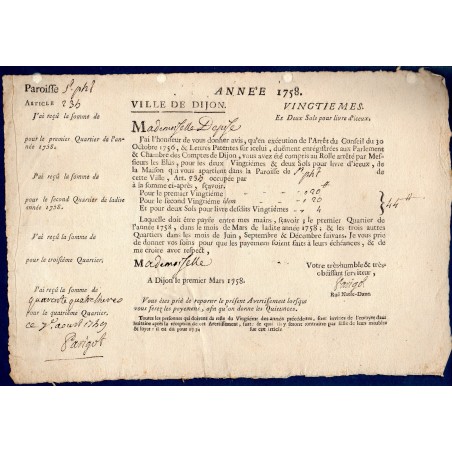 ANNÉE 1758.
Paroisse St. phl
ARTICLE 236
VILLE DE DIJON. VINGTIEMES.
Et Deux Sols pour livre d'iceux.
Mademoiselle
J'ai l'honneur de vous donner avis, qu'en exécution de l'Arrêt du Conseil du 30
Octobre 1756, & Lettres Patentes sur icelui, duëment enregistrées aux Parlement
& Chambre des Comptes de Dijon, vous avez été compris au Rolle arrêté par Mes-
sieurs les Elus, pour les deux Vingtièmes & deux Sols pour livre d'iceux, de
la Maison qui vous appartient dans la Paroisse de St. phl
de cette Ville, Art. 236 occupée par
à la somme ci-après, sçavoir.
Pour le premier Vingtième
Pour le second Vingtième idem
Et pour deux Sols pour livre desdits Vingtièmes 4
44
Laquelle somme doit être payée entre mes mains, sçavoir; le premier Quartier de
l'année 1758, dans le mois de Mars de ladite année 1758; & les trois autres
Quartiers dans les mois de Juin, Septembre & Décembre suivans. Je vous prie
de donner vos soins pour que les payemens soient faits à leurs échéances, & de
me croire avec respect,
Mademoiselle
Votre très-humble & très-
obéissant serviteur,
A Dijon le premier Mars 1758.
Parigot
Ruë Notre-Dame.
Vous êtes prié de rapporter le présent Avertissement lorsque
vous ferez les payemens, afin qu'on donne les Quittances.
Toutes les personnes qui doivent du reste du Vingtième des années précédentes, sont
J'ai reçu la somme de
pour le premier Quartier de l'an-
née 1758.
J'ai reçu la somme de
pour le second Quartier de ladite
année 1758.
J'ai reçu la somme de
pour le troisième Quartier.
J'ai reçu la somme de
quarante quatre livres
pour le quatrième Quartier.
ce 7e. aoust 1759
Parigot